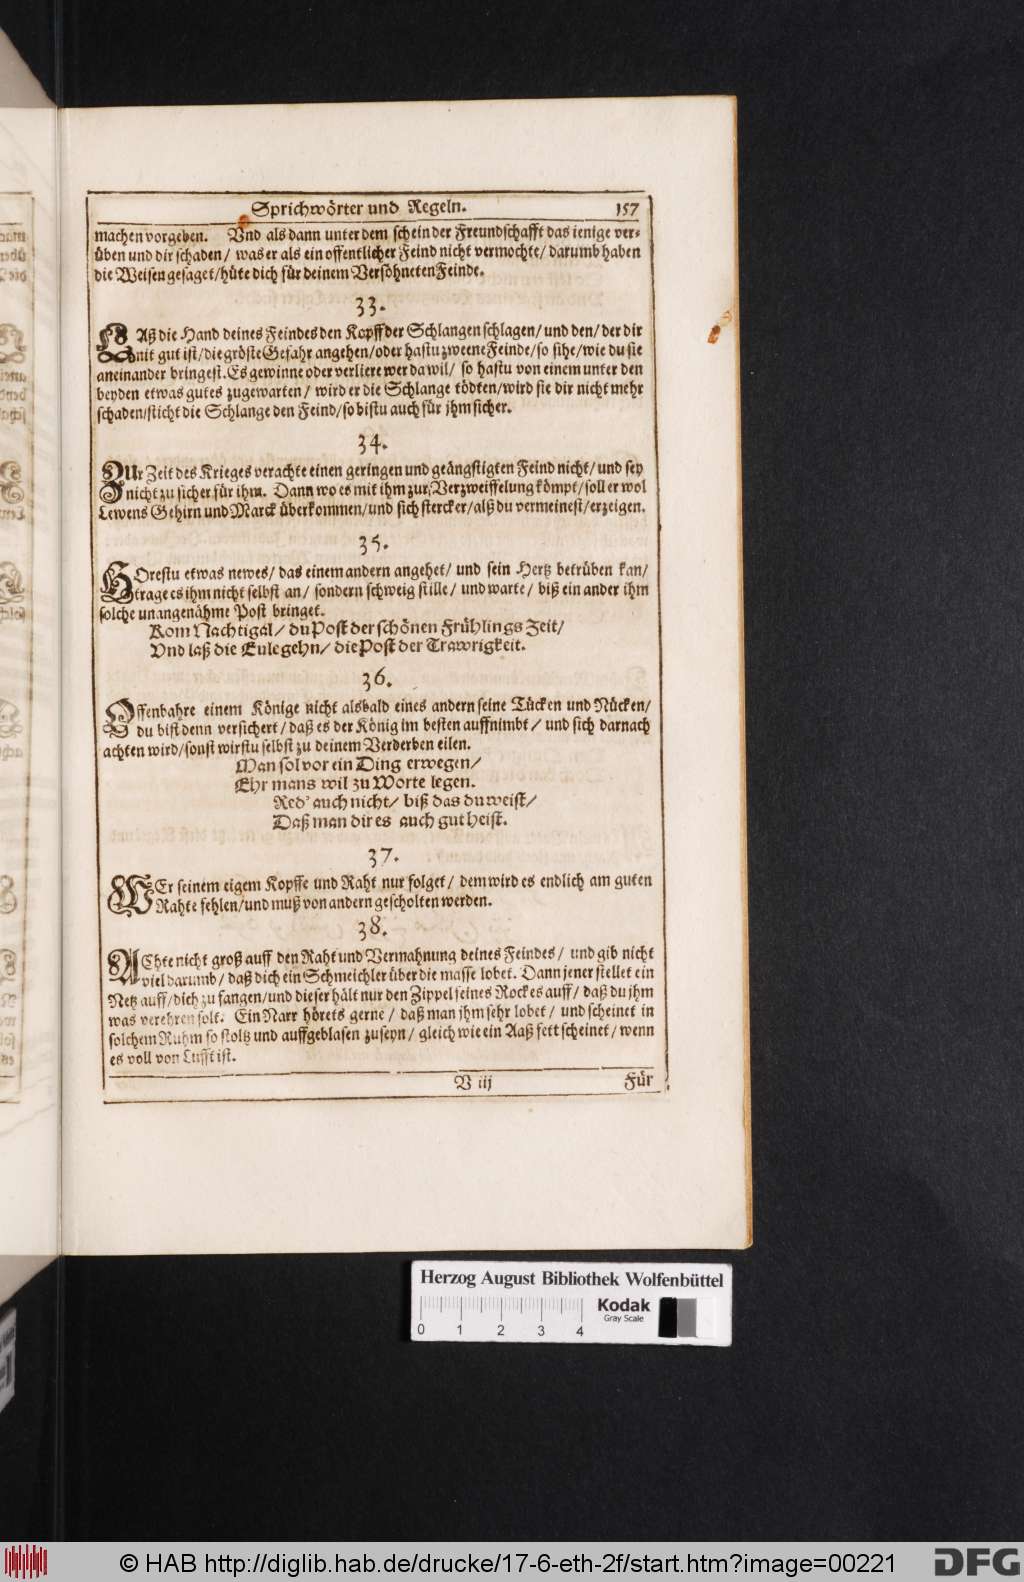 Sprichwörter und Regeln. 157
machen vorgeben. Vnd als dann unter dem schein der Freundschafft das jenige ver-
üben und dir schaden / was er als ein offentlicher Feind nicht vermochte / darumb haben
die Weisen gesaget / hüte dich für deinem Versöhneten Feinde.
33.
LAß die Hand deines Feindes den Kopff der Schlangen schlagen / und den / der dir
nit gut ist / die gröste Gefahr angehen / oder hastu zweene Feinde / so sihe / wie du sie
aneinander bringest. Es gewinne oder verliere wer da wil / so hastu von einem unter den
beyden etwas gutes zugewarten / wird er die Schlange tödten / wird sie dir nicht mehr
schaden / sticht die Schlange den Feind / so bistu auch für jhm sicher.
34.
ZUr Zeit des Krieges verachte einen geringen und geängstigten Feind nicht / und sey
nicht zu sicher für ihm. Dann wo es mit ihm zur Verzweiffelung kömpt / soll er wol
Lewens Gehirn und Marck überkommen / und sich stercker / alß du vermeinest / erzeigen.
35.
HOrestu etwas newes / das einem andern angehet / und sein Hertz betrüben kan /
trage es ihm nicht selbst an / sondern schweig stille / und warte / biß ein ander ihm
solche unangenähme Post bringet.
Kom Nachtigal / du Post der schönen Frühlings Zeit /
Vnd laß die Eule gehn / die Post der Trawrigkeit.
36.
Offenbahre einem Könige nicht alsbald eines andern seine Tücken und Nücken /
du bist denn versichert / daß es der König im besten auffnimbt / und sich darnach
achten wird / sonst wirstu selbst zu deinem Verderben eilen.
Man sol vor ein Ding erwegen /
Ehr mans wil zu Worte legen.
Red' auch nicht / biß das du weist /
Daß man dir es auch gut heist.
37.
WEr seinem eigem Kopffe und Raht nur folget / dem wird es endlich am guten
Rahte fehlen / und muß von andern gescholten werden.
38.
AChte nicht groß auff den Raht und Vermahnung deines Feindes / und gib nicht
viel darumb / daß dich ein Schmeichler über die masse lobet. Dann jener stellet ein
Netz auff / dich zu fangen / und dieser hält nur den Zippel seines Rockes auff / daß du jhm
was verehren solt. Ein Narr hörets gerne / daß man jhm sehr lobet / und scheinet in
solchem Ruhm so stoltz und auffgeblasen zuseyn / gleich wie ein Aaß fett scheinet / wenn
es voll von Lufft ist.
V iij Für
Herzog August Bibliothek Wolfenbüttel
Kodak
Gray Scale
0 1 2 3 4
© HAB http://diglib.hab.de/drucke/17-6-eth-2f/start.htm?image=00221
DFG